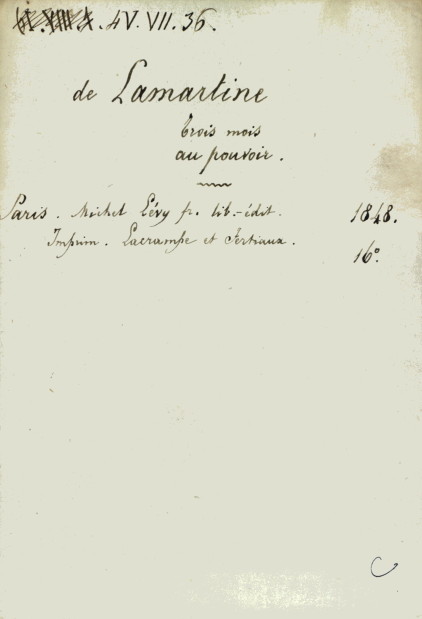 4V. VII. 36.
de Lamartine
trois mois
au pouvoir.
Paris. Michel Lévy fr. lib.-édit. 1848.
Imprim. Lacrampe et Fertiaux.
16°.
C